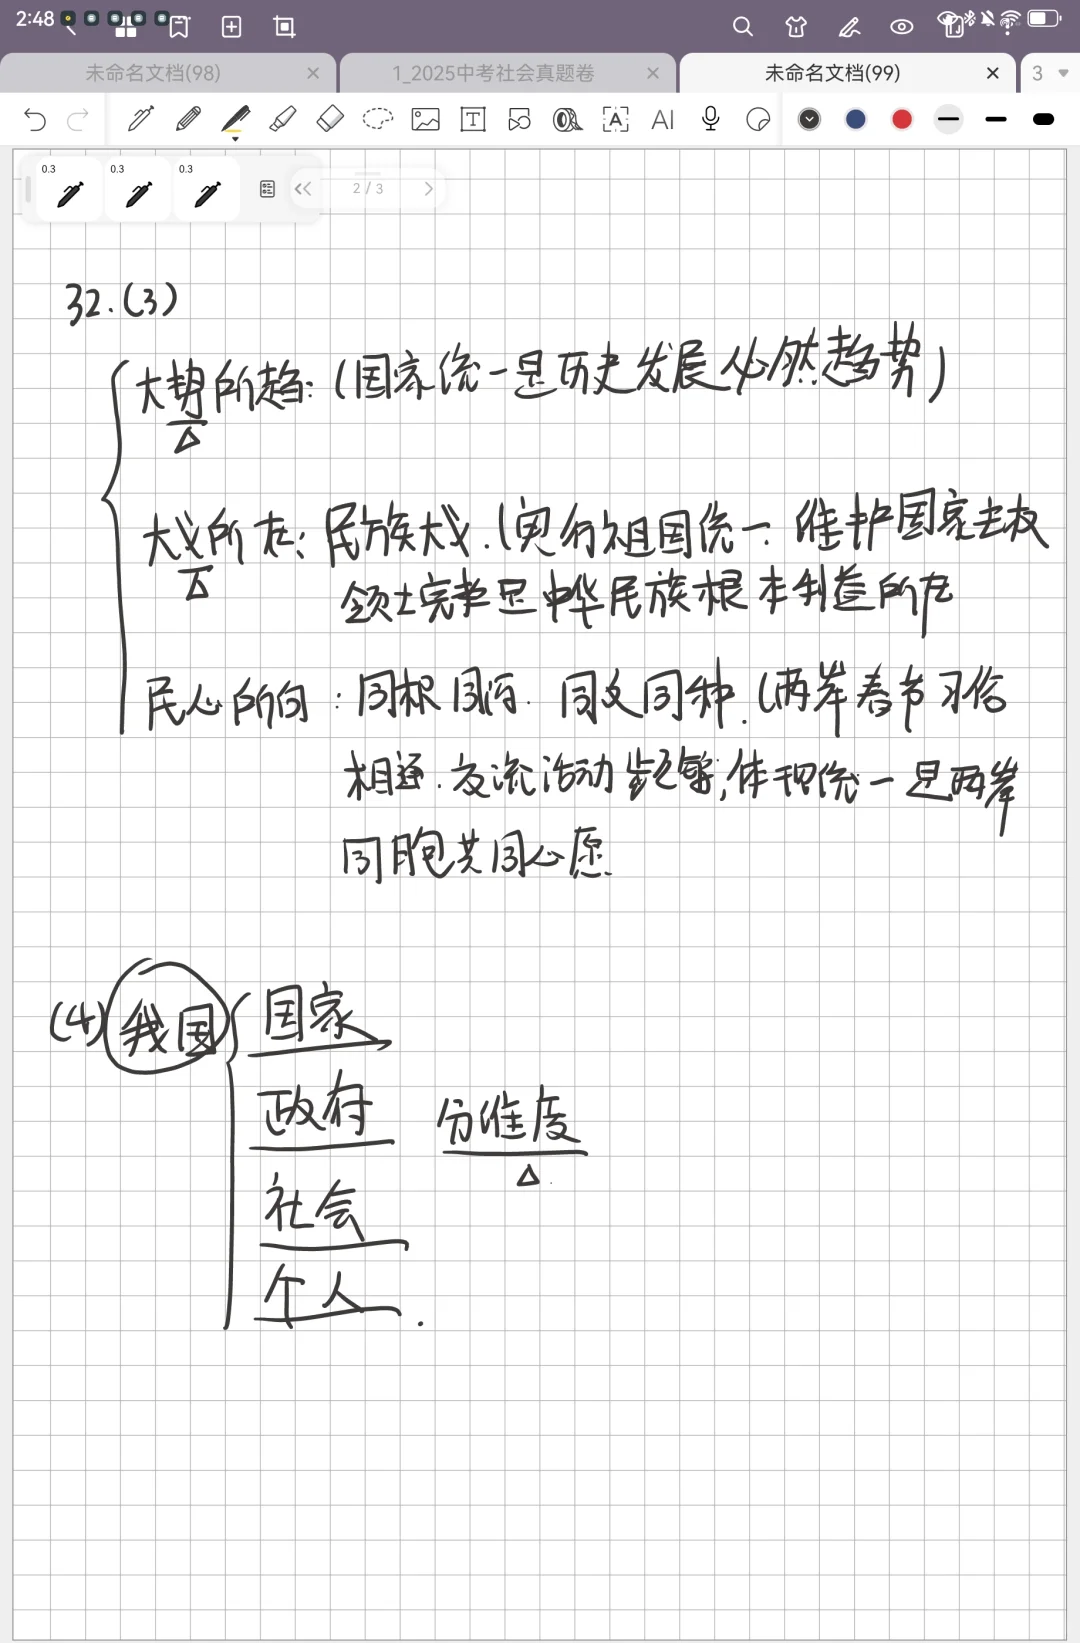 2:48
未命名文档(98)
1_2025中考社会真题卷
未命名文档(99)
3
0.3
0.3
0.3
2 / 3
32.(3)
大势所趋:(国家统一是历史发展必然趋势)
大义所在:民族大义.(实行祖国统一.维护国家主权
领土完整是中华民族根本利益所在
民心所向:同根同源.同文同种.(两岸春节习俗
相通.交流活动频繁,体现统一是两岸
同胞共同心愿.
(4)我国 国家
政府 分维度
社会
个人.